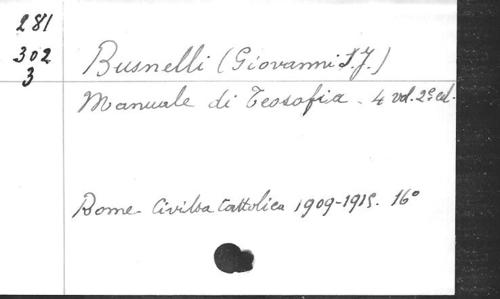 281
302
3
Busnelli (Giovanni S.J.)
Manuale di Teosofia - 4 vol. 2ª ed.
Rome - Civilta Cattolica 1909-1915. 16°